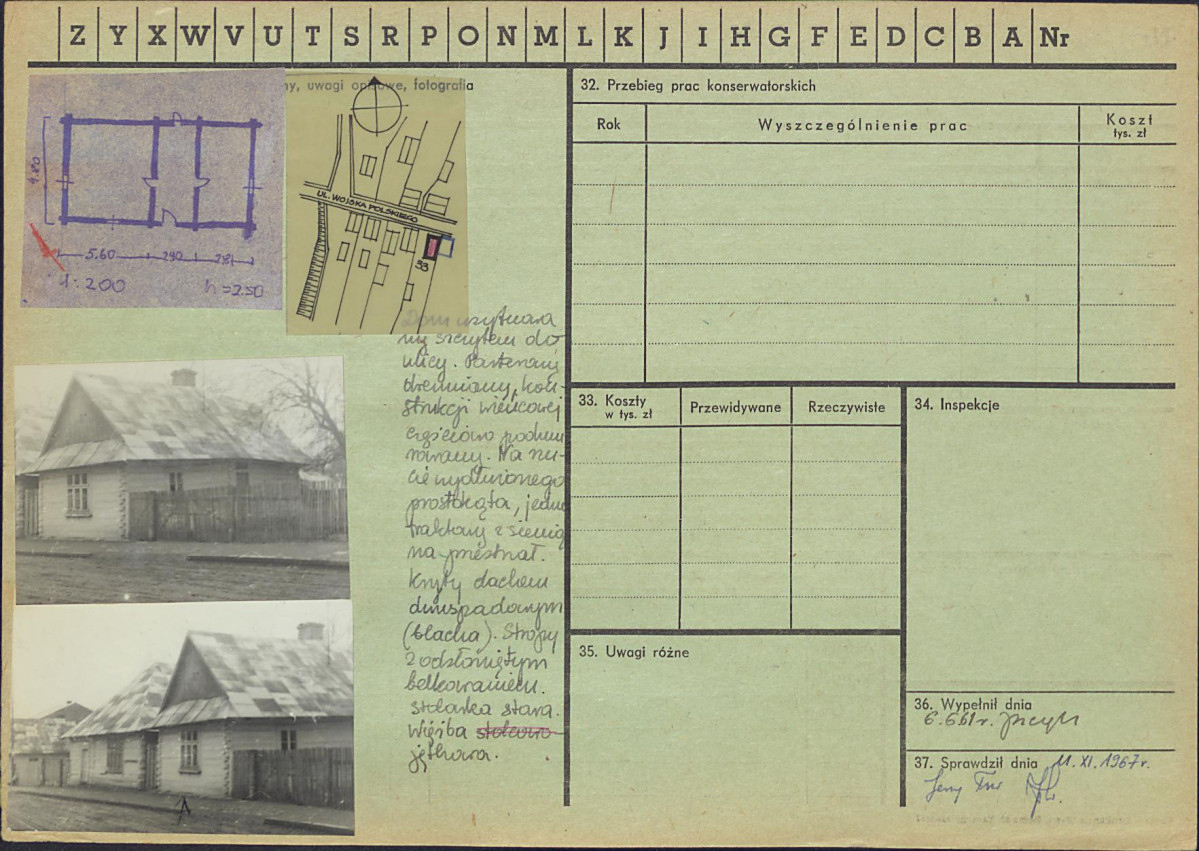 Z Y X W V U T S R P O N M L K J I H G F E D C B A Nr
ny, uwagi opisowe, fotografia
4.80
5.60 2.90 2.81
1:200 h=2.50
UL. WOJSKA POLSKIEGO
33
Dom usytuowa
ny szczytem do
ulicy. Parterowy
drewniany, kon-
strukcji wieńcowej
częściowo podmu
rowany. Na rzu-
cie wydłużonego
prostokąta, jedno
traktowy z sienią
na przestrzał.
Kryty dachem
dwuspadowym
(blacha). Stropy
z odsłoniętym
belkowaniem.
stolarka stara.
Więźba stolcowo
jętkowa.
32. Przebieg prac konserwatorskich
Rok Wyszczególnienie prac Koszt
tys. zł
33. Koszty
w tys. zł
Przewidywane Rzeczywiste
34. Inspekcje
35. Uwagi różne
36. Wypełnił dnia
6.6.61 r.
37. Sprawdził dnia 11. XI. 1967 r.
Jerzy Tur